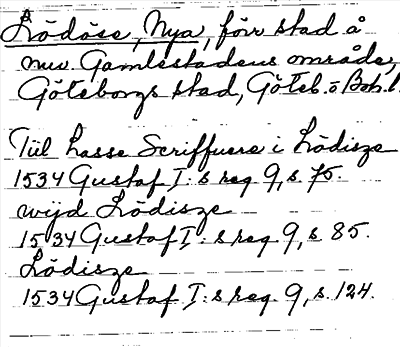 Lödöse, Nya, förr stad å
nuv. Gamlestadens område,
Göteborgs stad, Göteb. o Boh. l.
Till Lasse Scriffuere i Lödisze
1534 Gustaf I:s reg 9, s 75.
wijd Lödisze
1534 Gustaf I:s reg. 9, s. 85.
Lödisze
1534 Gustaf I:s reg. 9, s. 124.